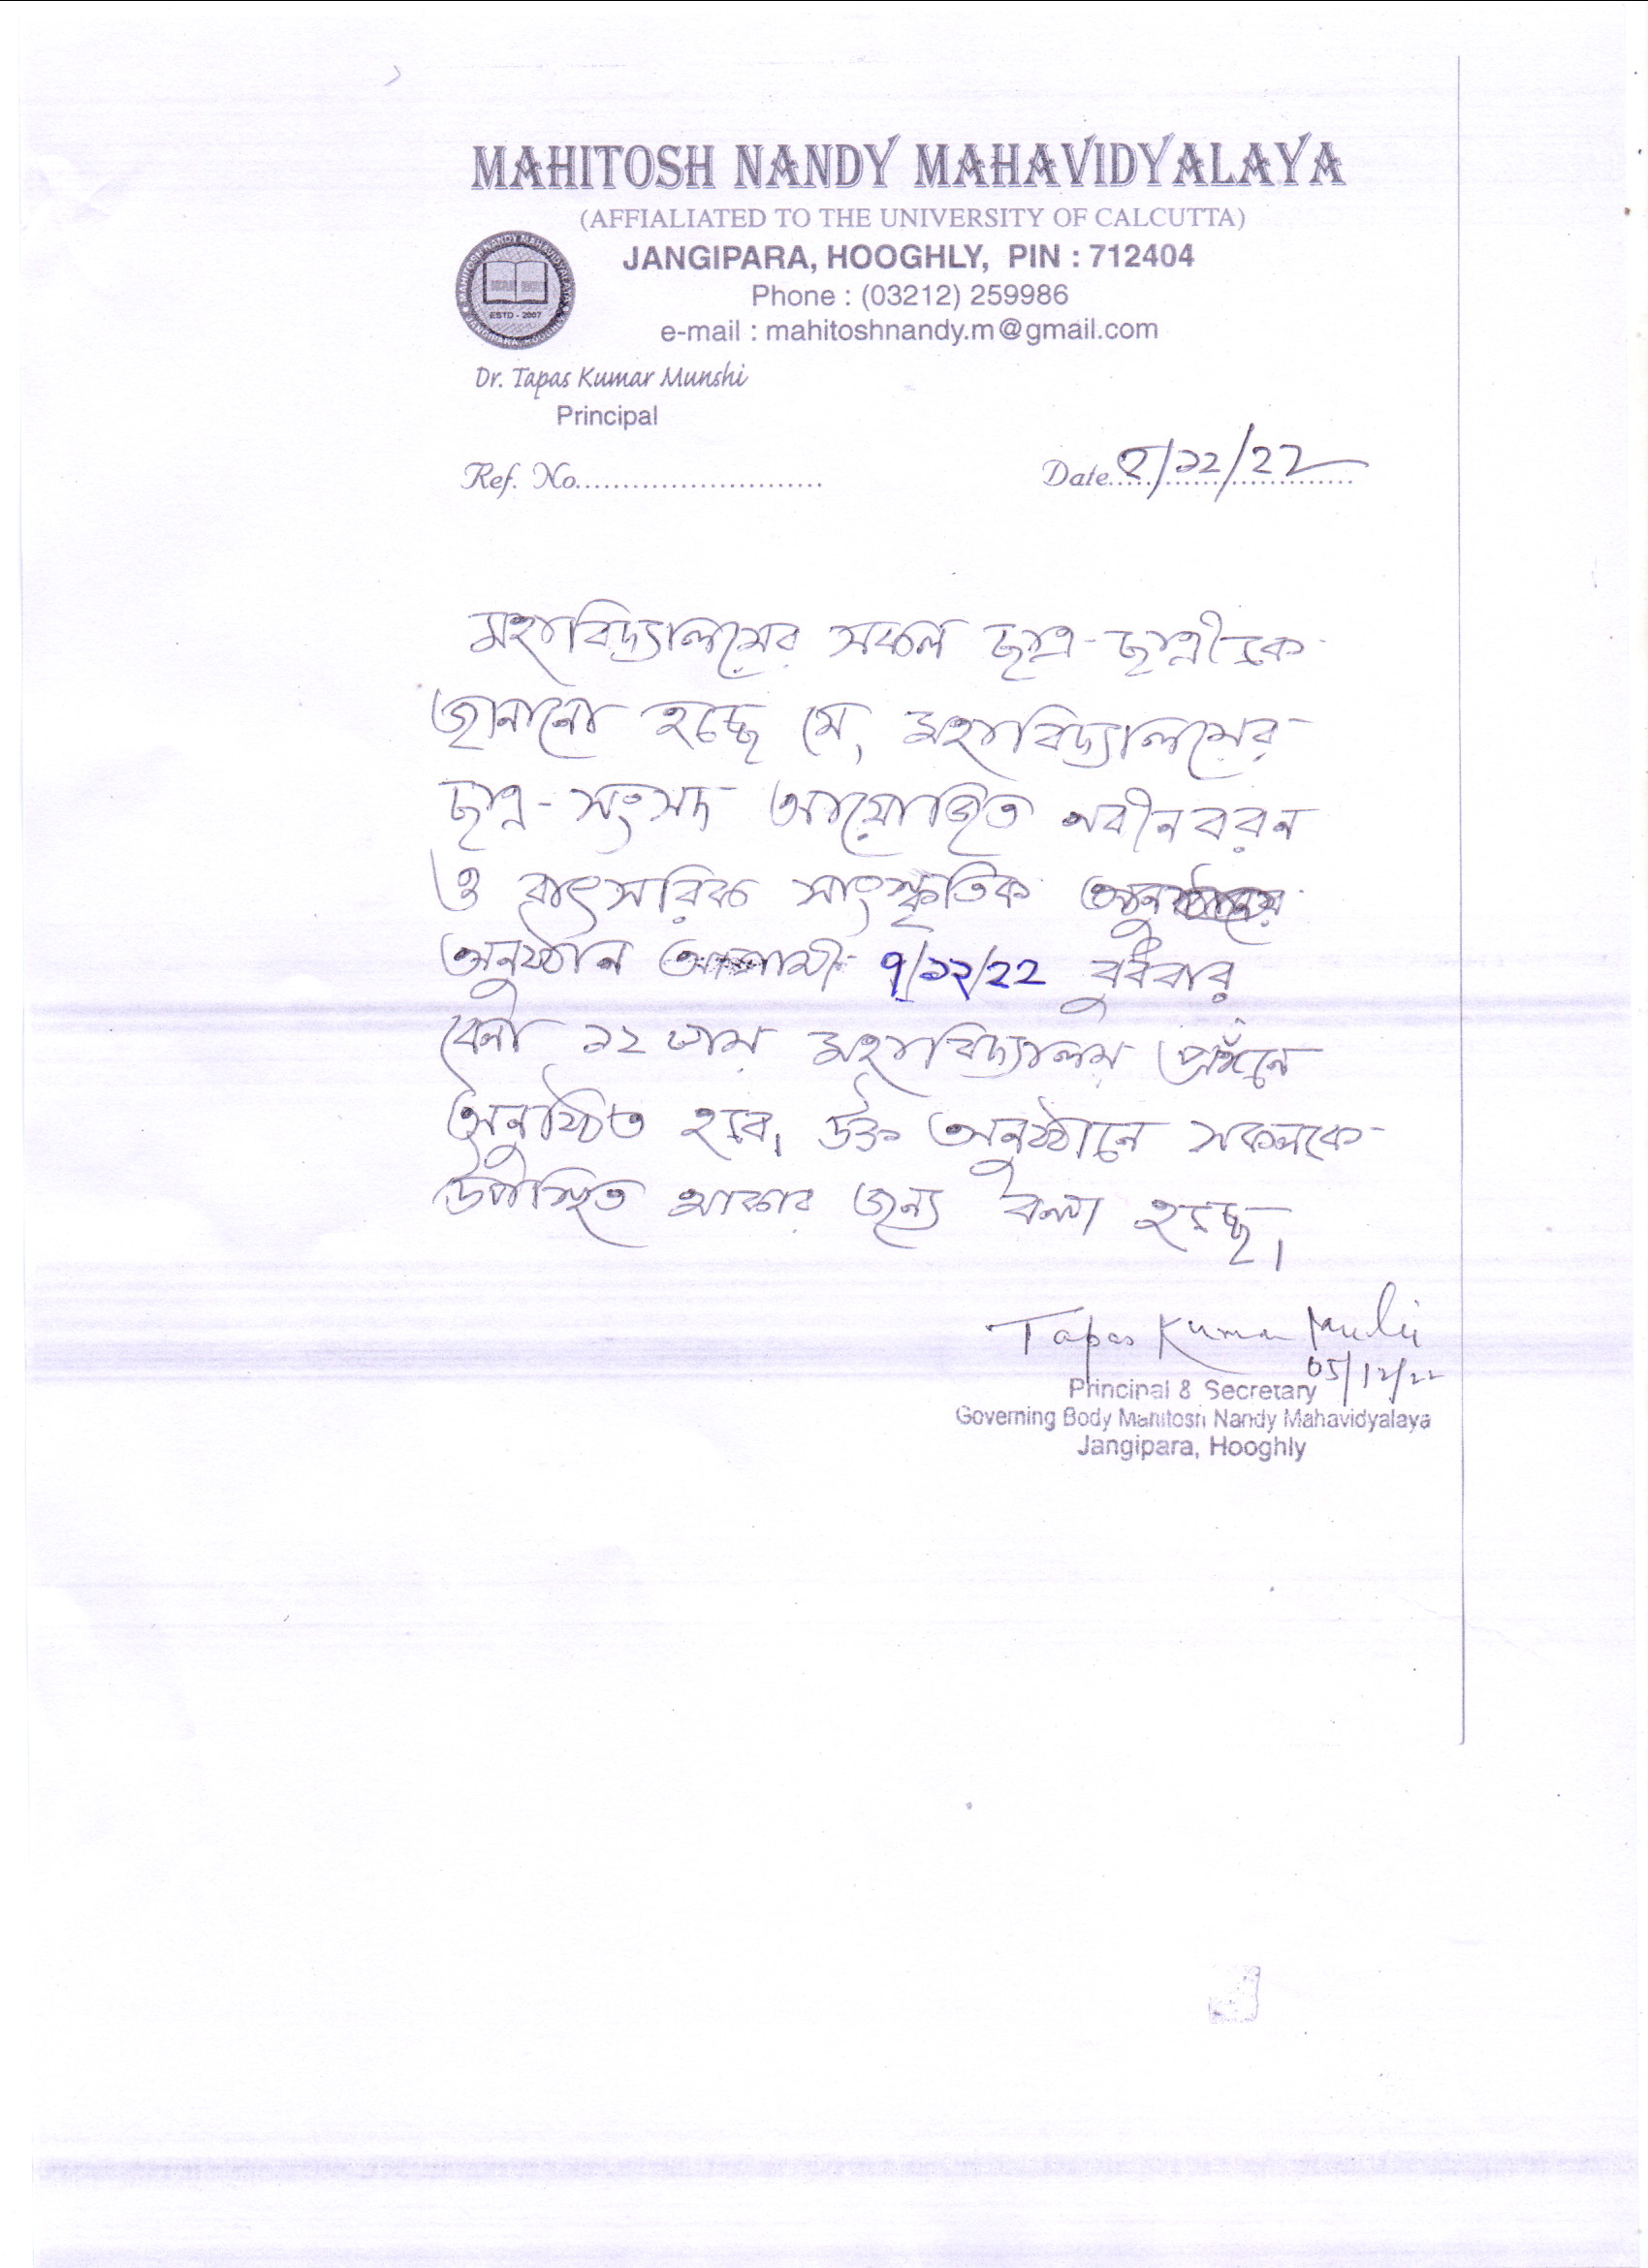 MAHITOSH NANDY MAHAVIDYALAYA
(AFFIALIATED TO THE UNIVERSITY OF CALCUTTA)
JANGIPARA, HOOGHLY, PIN : 712404
Phone : (03212) 259986
e-mail : mahitoshnandy.m@gmail.com
MAHITOSH NANDY MAHAVIDYALAYA
ESTD - 2007
JANGIPARA, HOOGHLY
Dr. Tapas Kumar Munshi
Principal
Ref. No..........................
Date /১২/২২
মহাবিদ্যালয়ের সকল ছাত্র-ছাত্রীকে
জানানো হচ্ছে যে, মহাবিদ্যালয়ের
ছাত্র-সংসদ আয়োজিত নবীনবরন
ও বাৎসরিক সাংস্কৃতিক
অনুষ্ঠান আগামী ৭/১২/২২ বুধবার
বেলা ১২ টায় মহাবিদ্যালয় প্রাঙ্গনে
অনুষ্ঠিত হবে। উক্ত অনুষ্ঠানে সকলকে
উপস্থিত থাকার জন্য বলা হচ্ছে।
Tapas Kumar Munshi
05/12/22
Principal & Secretary
Governing Body Mahitosh Nandy Mahavidyalaya
Jangipara, Hooghly